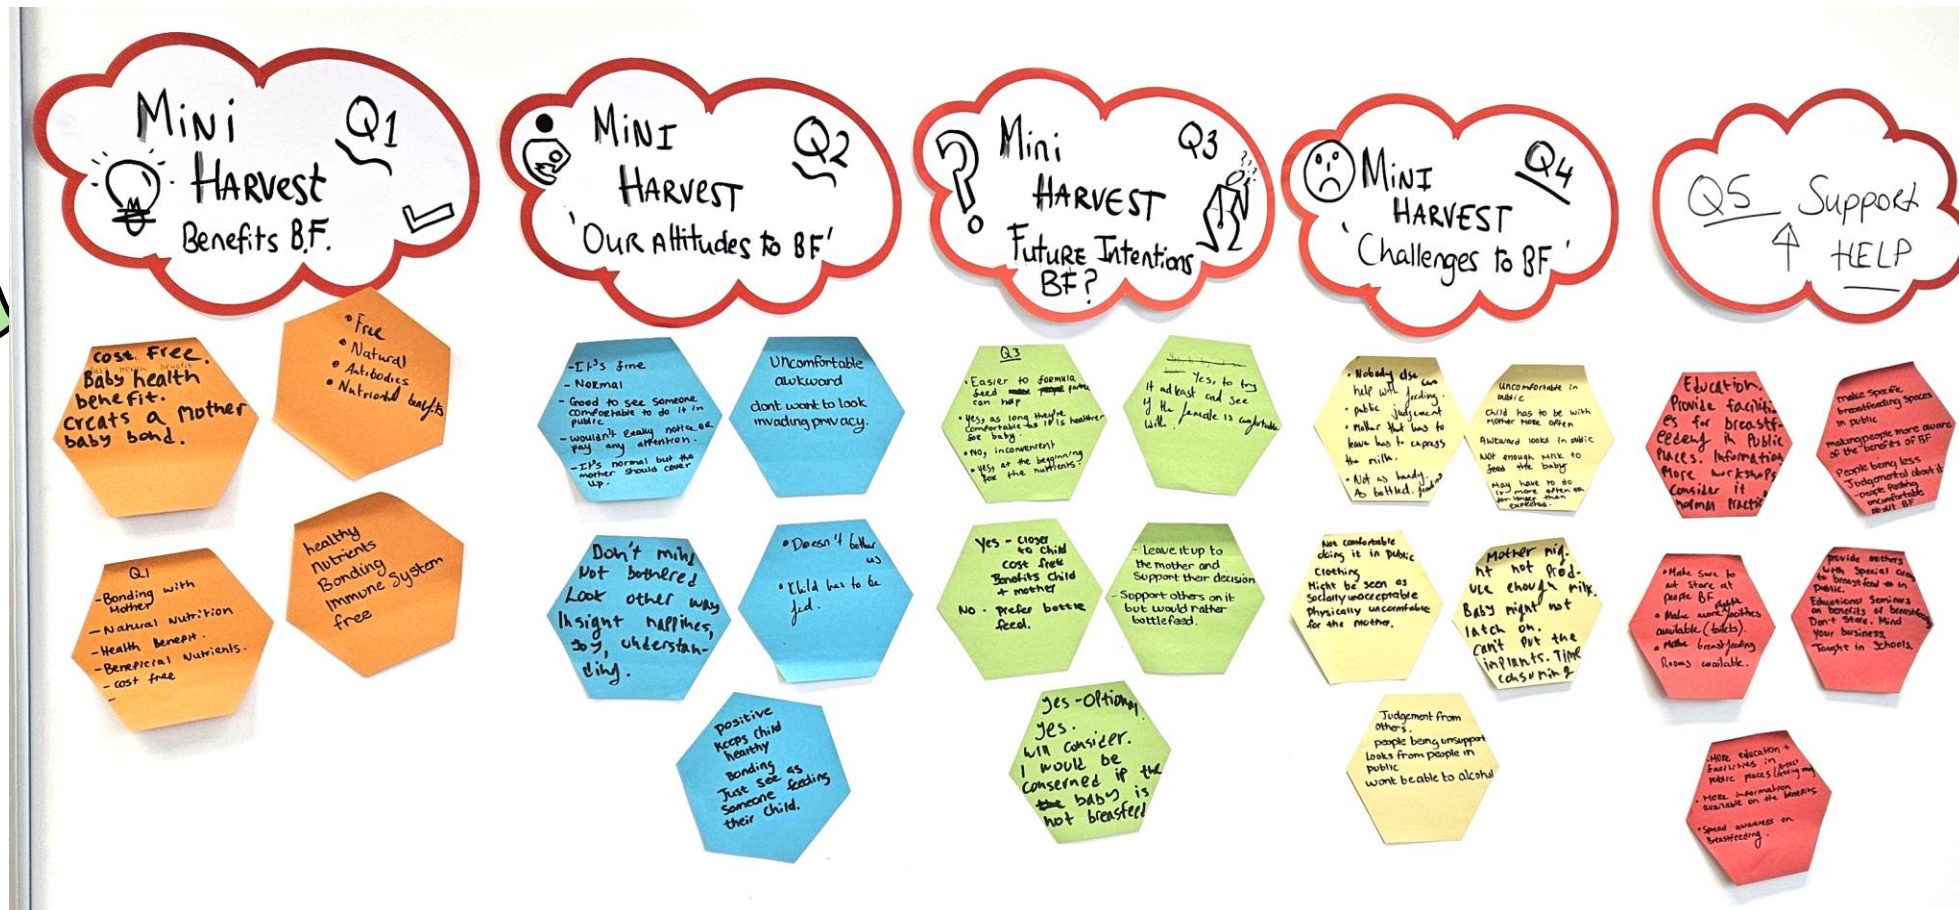 Mini
Q1
HARVEST
Benefits B.F.
cost free.
Baby health
benefit.
creats a Mother
baby bond.
• Free
• Natural
• Antibodies
• Nutrional benefits
Q1
- Bonding with
Mother
- Natural Nutrition
- Health Benefit.
- Beneficial Nutrients.
- cost free
-
healthy
nutrients
Bonding
Immune System
free
MiNI
Q2
HARVEST
'OUR Attitudes to BF'
- It's fine
- Normal
- Good to see someone
comfortable to do it in
public
- wouldn't really notice or
pay any attention.
- It's normal but the
mother should cover
up.
Uncomfortable
awkward
dont want to look
invading privacy.
Don't mind
Not bothered
Look other way
Insight happines,
joy, understan-
ding.
• Doesn't bother
us
• Child has to be
fed.
positive
Keeps child
healthy
Bonding
Just see as
someone feeding
their child.
Mini
Q3
HARVEST
Future Intentions
BF?
Q3
• Easier to formula
feed
can help
• Yes, as long they're
comfortable as it is healthier
for baby
• No, inconvenient
• Yes, at the beginning
for the nutrients.
Yes, to try
it atleast and see
if the female is comfortable
with.
Yes - closer
to child
cost free
Benefits child
+ mother
No - prefer bottle
feed.
- Leave it up to
the mother and
Support their decision
- Support others on it
but would rather
bottlefeed.
yes - Optional
yes.
will consider.
I would be
conserned if the
baby is
not breastfeed
MiNI
Q4
HARVEST
'Challenges to BF'
• Nobody else can
help with feeding.
• public judgement
• Mother that has to
leave has to express
the milk.
• Not as handy.
As bottled. feeding
uncomfortable in
public
Child has to be with
Mother more often
Awkward looks in public
Not enough milk to
feed the baby
May have to do
it more often or
for longer than
expected.
Not comfortable
doing it in public
Clothing
Might be seen as
Socially unacceptable
Physically uncomfortable
for the mother.
Mother mig-
ht not prod-
uce enough milk.
Baby might not
latch on.
can't put the
inplants. Time
consuming
Judgement from
others.
people being unsupport
Looks from people in
public
wont be able to alcohol
Q5 Support
↑ HELP
Education.
Provide faciliti
es for breastf-
eedeng in Public
Places. Information
More workshops
consider it
normal Practic
make specific
breastfeeding spaces
in public
making people more aware
of the benefits of BF
People being less
Judgemental about it
- people feeling
uncomfortable
about BF
• Make sure to
not stare at
people BF
• Make more
available (toilets).
• Make breastfeeding
Rooms available.
provide mothers
with special areas
to breastfeed in
Public.
Educational Seminars
on benefits of breastfeeding
Don't Stare. Mind
Your business
Taught in Schools.
• More education +
facilities in
public places
• More information
available on the benefits
• Spread awareness on
Breastfeeding.